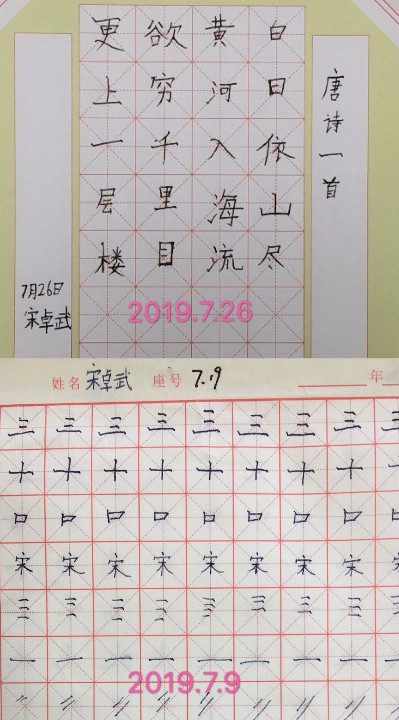 唐诗一首
白日依山尽
黄河入海流
欲穷千里目
更上一层楼
7月26日
宋卓武
2019.7.26
姓名 宋卓武 座号 7.9 年
三 三 三 三 三 三 三 三 三
十 十 十 十 十 十 十 十
口 口 口 口 口 口 口 口
宋 宋 宋 宋 宋 宋 宋 宋
一 一 一 一 一 一 一 一
2019.7.9